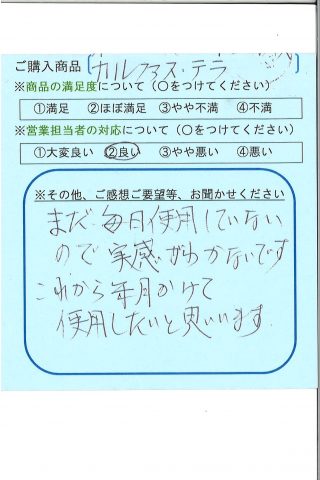 ご購入商品 カルファス・テラ
※商品の満足度について(○をつけてください)
①満足 ②ほぼ満足 ③やや不満 ④不満
※営業担当者の対応について(○をつけてください)
①大変良い ②良い ③やや悪い ④悪い
※その他、ご感想ご要望等、お聞かせください
まだ毎日使用していない
ので実感がわかないです
これから年月かけて
使用したいと思います。